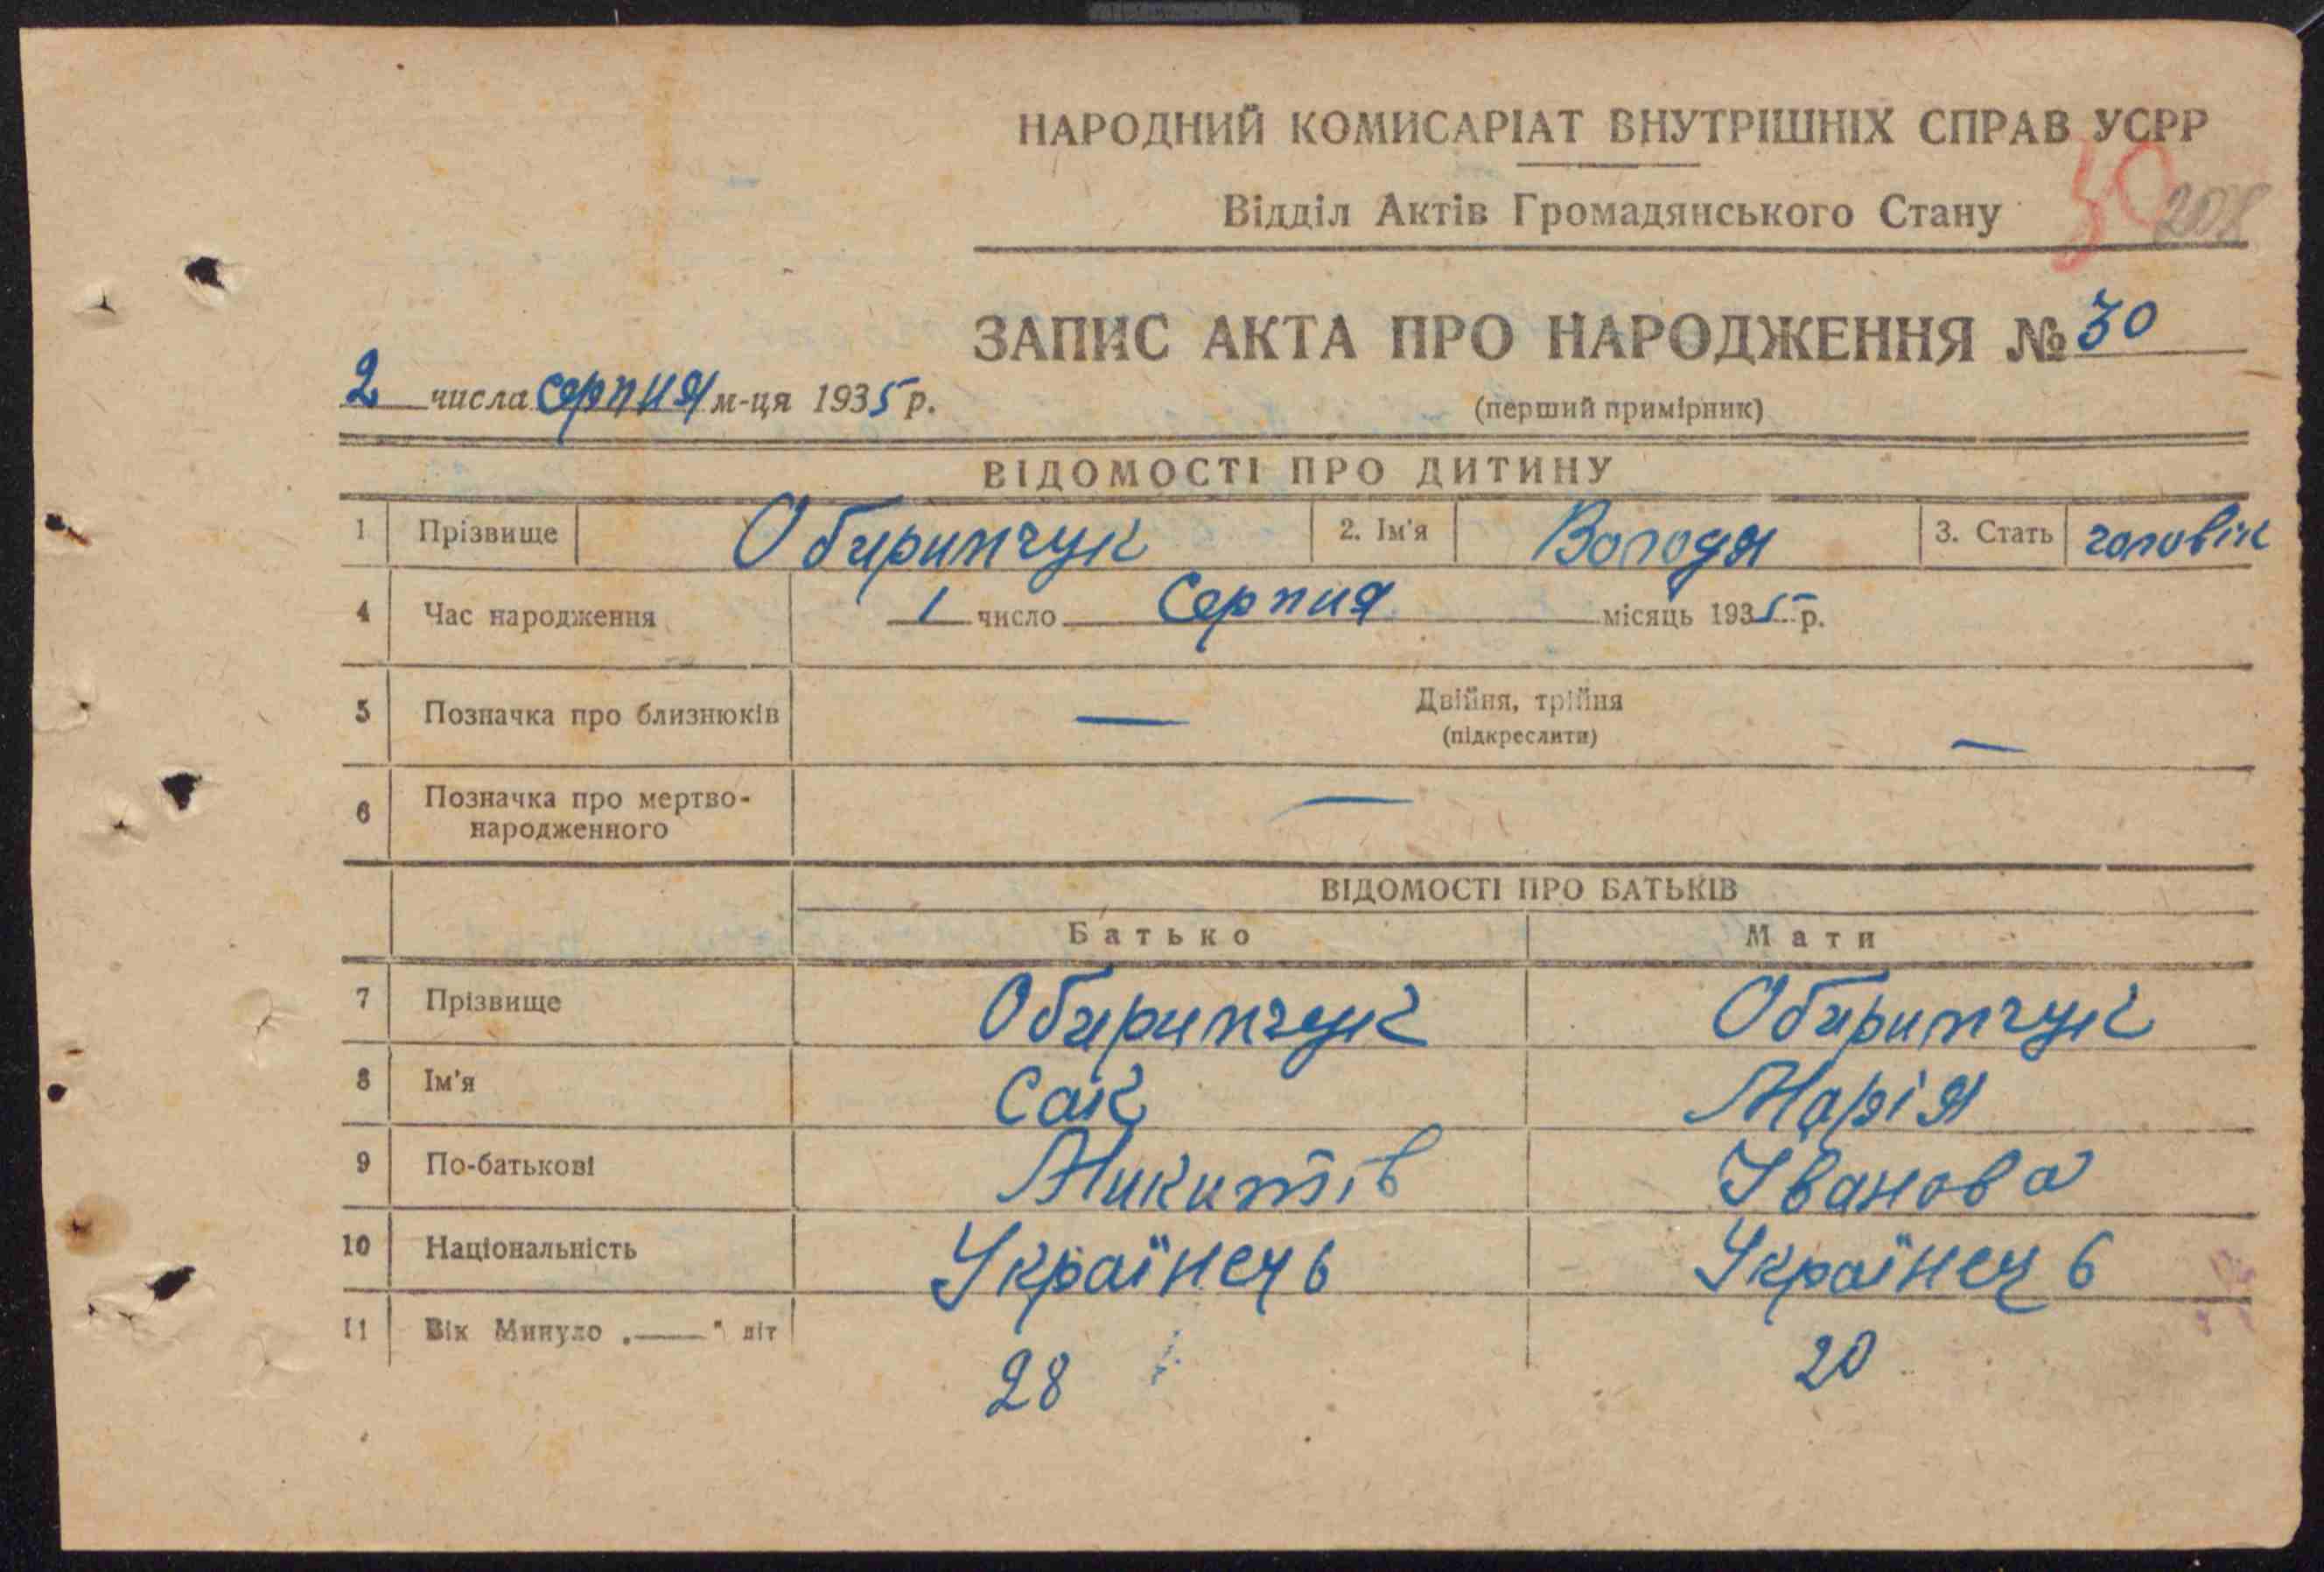 НАРОДНИЙ КОМИСАРІАТ ВНУТРІШНІХ СПРАВ УСРР
Відділ Актів Громадянського Стану
50 208
ЗАПИС АКТА ПРО НАРОДЖЕННЯ № 30
2 числа серпня м-ця 1935 р.
(перший примірник)
ВІДОМОСТІ ПРО ДИТИНУ
1 Прізвище Обиримчук 2. Ім'я Володя 3. Стать чоловік
4 Час народження 1 число Серпня місяць 1935 р.
5 Позначка про близнюків — Двійня, трійня —
(підкреслити)
6 Позначка про мертво-
народженного —
ВІДОМОСТІ ПРО БАТЬКІВ
Батько Мати
7 Прізвище Обиримчук Обиримчук
8 Ім'я Сак Марія
9 По-батькові Микитів Іванова
10 Національність Українець Українець
11 Вік Минуло „——" літ 28 20